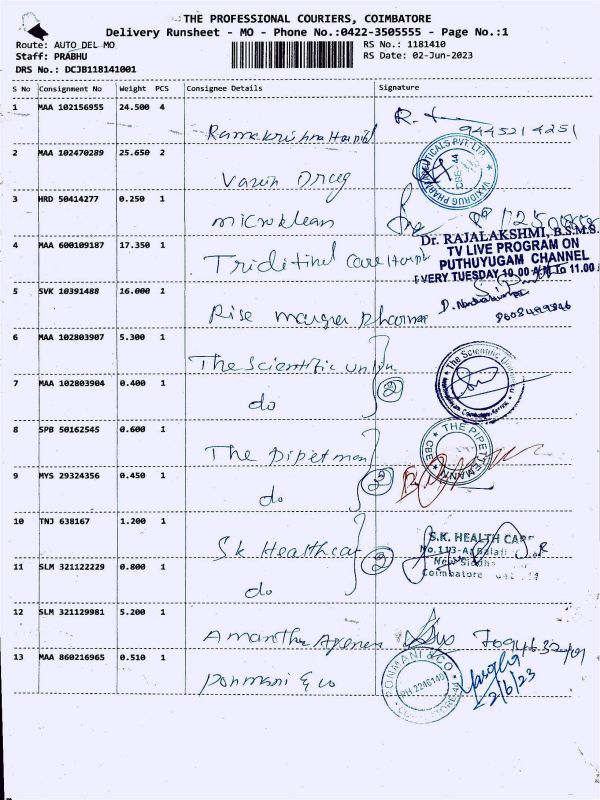 THE PROFESSIONAL COURIERS, COIMBATORE
Delivery Runsheet - MO - Phone No.:0422-3505555 - Page No.:1
Route: AUTO DEL MO
RS No.: 1181410
Staff: PRABHU
RS Date: 02-Jun-2023
DRS No.: DCJB118141001
S No Consignment No Weight PCS Consignee Details Signature
1 MAA 102156955 24.500 4
Ramakrishna Hospital
9445214251
2 MAA 102470289 25.650 2
Varun Drug
VAXIDRUG PHARMACEUTICALS PVT LTD
CBE-44
3 HRD 50414277 0.250 1
microklean
4 MAA 600109187 17.350 1
Dr. RAJALAKSHMI, B.S.M.S.
TV LIVE PROGRAM ON
PUTHUYUGAM CHANNEL
EVERY TUESDAY 10.00 AM To 11.00
Care Hospital
5 SVK 10391488 16.000 1
Rise Pharma
8608499846
6 MAA 102803907 5.300 1
The Scientific union
The Scientific Union
7 MAA 102803904 0.400 1
do
2
8 SPB 50162545 0.600 1
The pipetman
THE PIPETTEMANN
CBE
9 MYS 29324356 0.450 1
do
2
10 TNJ 638167 1.200 1
Sk Healthcar
S.K. HEALTH CARE
11 SLM 321122229 0.800 1
do
2
New Siddha
Coimbatore
12 SLM 321129981 5.200 1
Amantha Agences
13 MAA 860216965 0.510 1
Ponmani & co
PONMANI & CO
PH 2246140
2/6/23